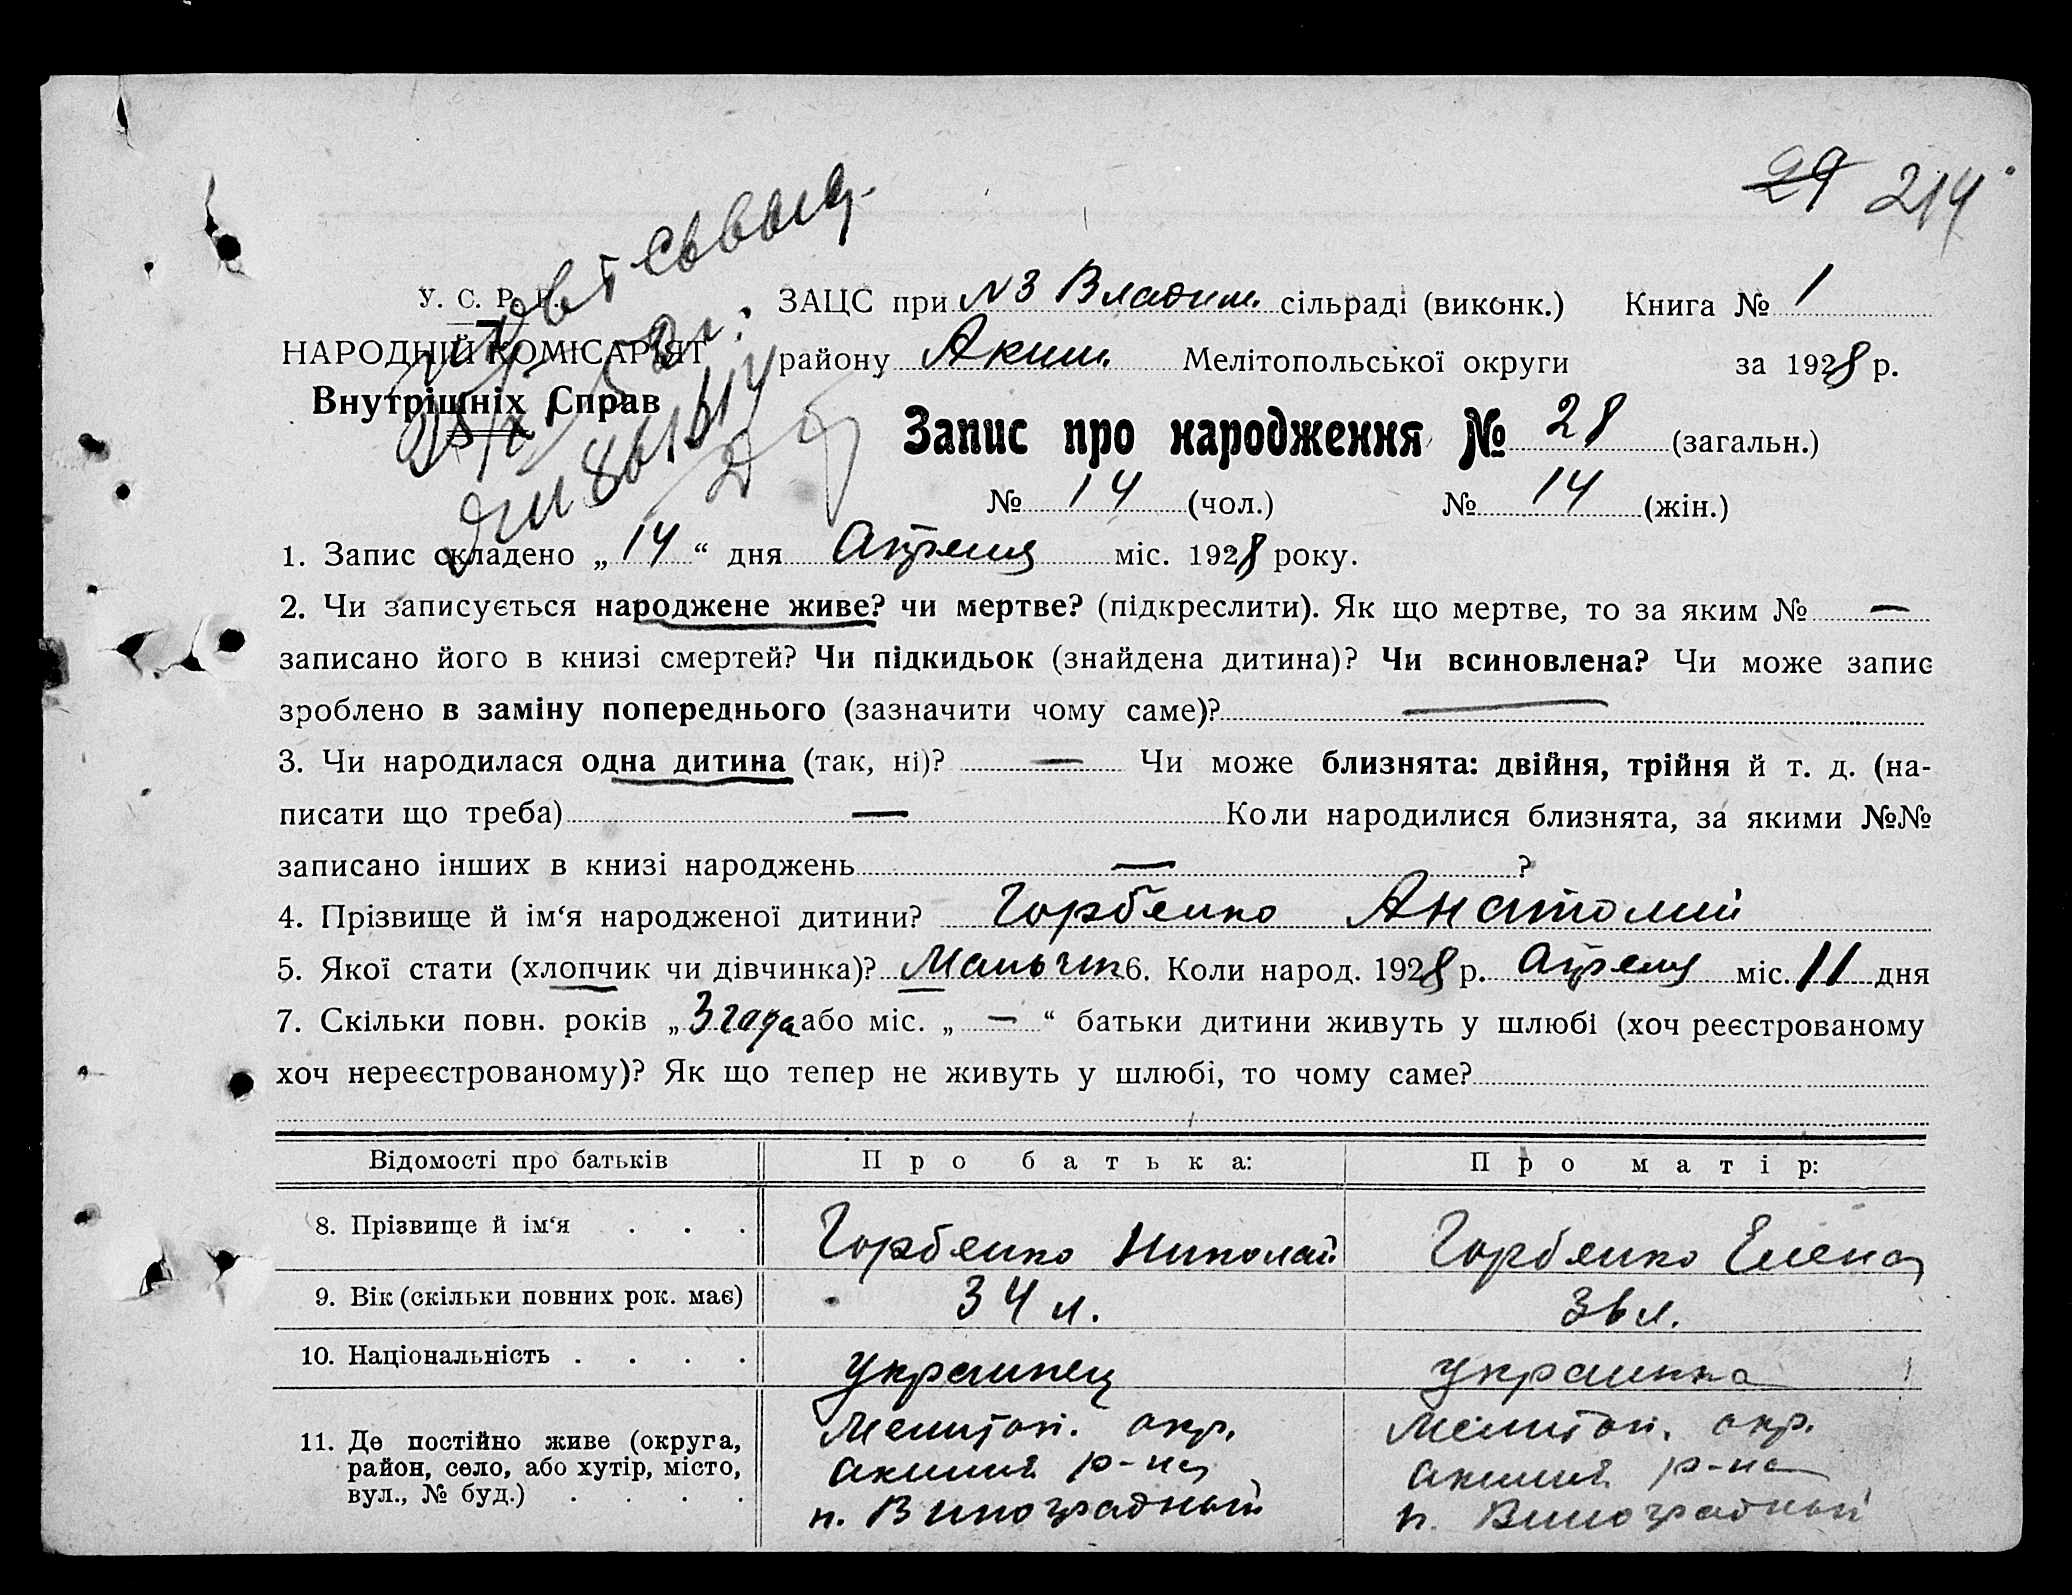 29 214
У. С. Р. Р. ЗАЦС при №3 Владим. сільраді (виконк.) Книга № 1
НАРОДНІЙ КОМІСАРІЯТ району Аким. Мелітопольської округи за 1928 р.
Внутрішніх Справ
Запис про народження № 28 (загальн.)
№ 14 (чол.) № 14 (жін.)
1. Запис складено „ 14 “ дня Апреля міс. 1928 року.
2. Чи записується народжене живе? чи мертве? (підкреслити). Як що мертве, то за яким № —
записано його в книзі смертей? Чи підкидьок (знайдена дитина)? Чи всиновлена? Чи може запис
зроблено в заміну попереднього (зазначити чому саме)? —
3. Чи народилася одна дитина (так, ні)? — Чи може близнята: двійня, трійня й т. д. (на-
писати що треба) — Коли народилися близнята, за якими №№
записано інших в книзі народжень — ?
4. Прізвище й ім‘я народженої дитини? Горбенко Анатолий
5. Якої стати (хлопчик чи дівчинка)? Мальчик 6. Коли народ. 1928 р. Апреля міс. 11 дня
7. Скільки повн. років „ 3 года або міс. „ — “ батьки дитини живуть у шлюбі (хоч реєстрованому
хоч нереєстрованому)? Як що тепер не живуть у шлюбі, то чому саме?
Відомості про батьків Про батька: Про матір:
8. Прізвище й ім‘я . . . Горбенко Николай Горбенко Елена
9. Вік (скільки повних рок. має) 34 л. 36 л.
10. Національність . . . . украинец украинка
11. Де постійно живе (округа, Мелитоп. окр. Мелитоп. окр.
район, село, або хутір, місто, Аким. р-на Аким. р-на
вул., № буд.) . . . . п. Виноградный п. Виноградный